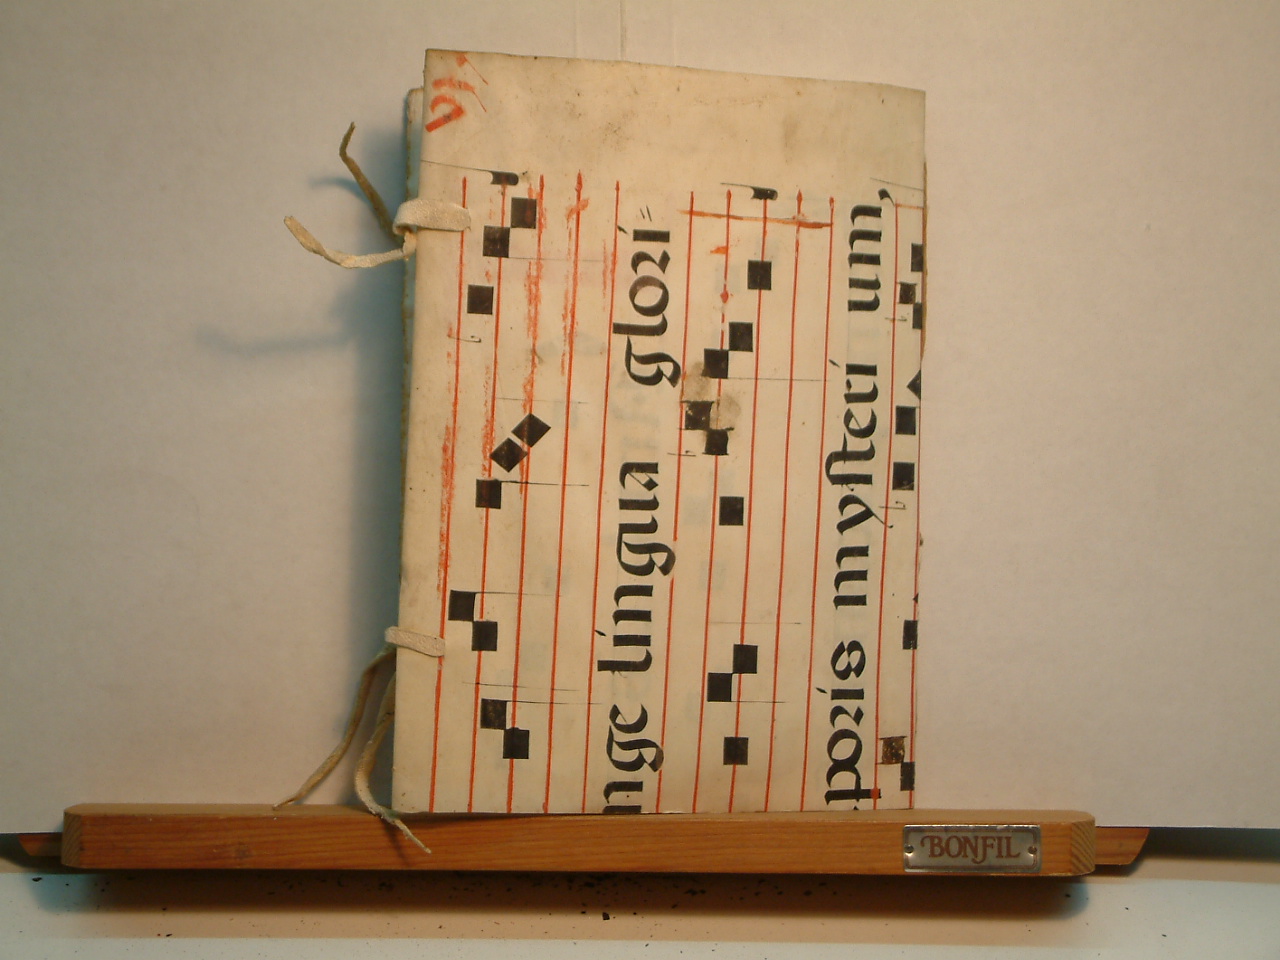 nge lingua glori=
poris mysteri um,
BONFIL